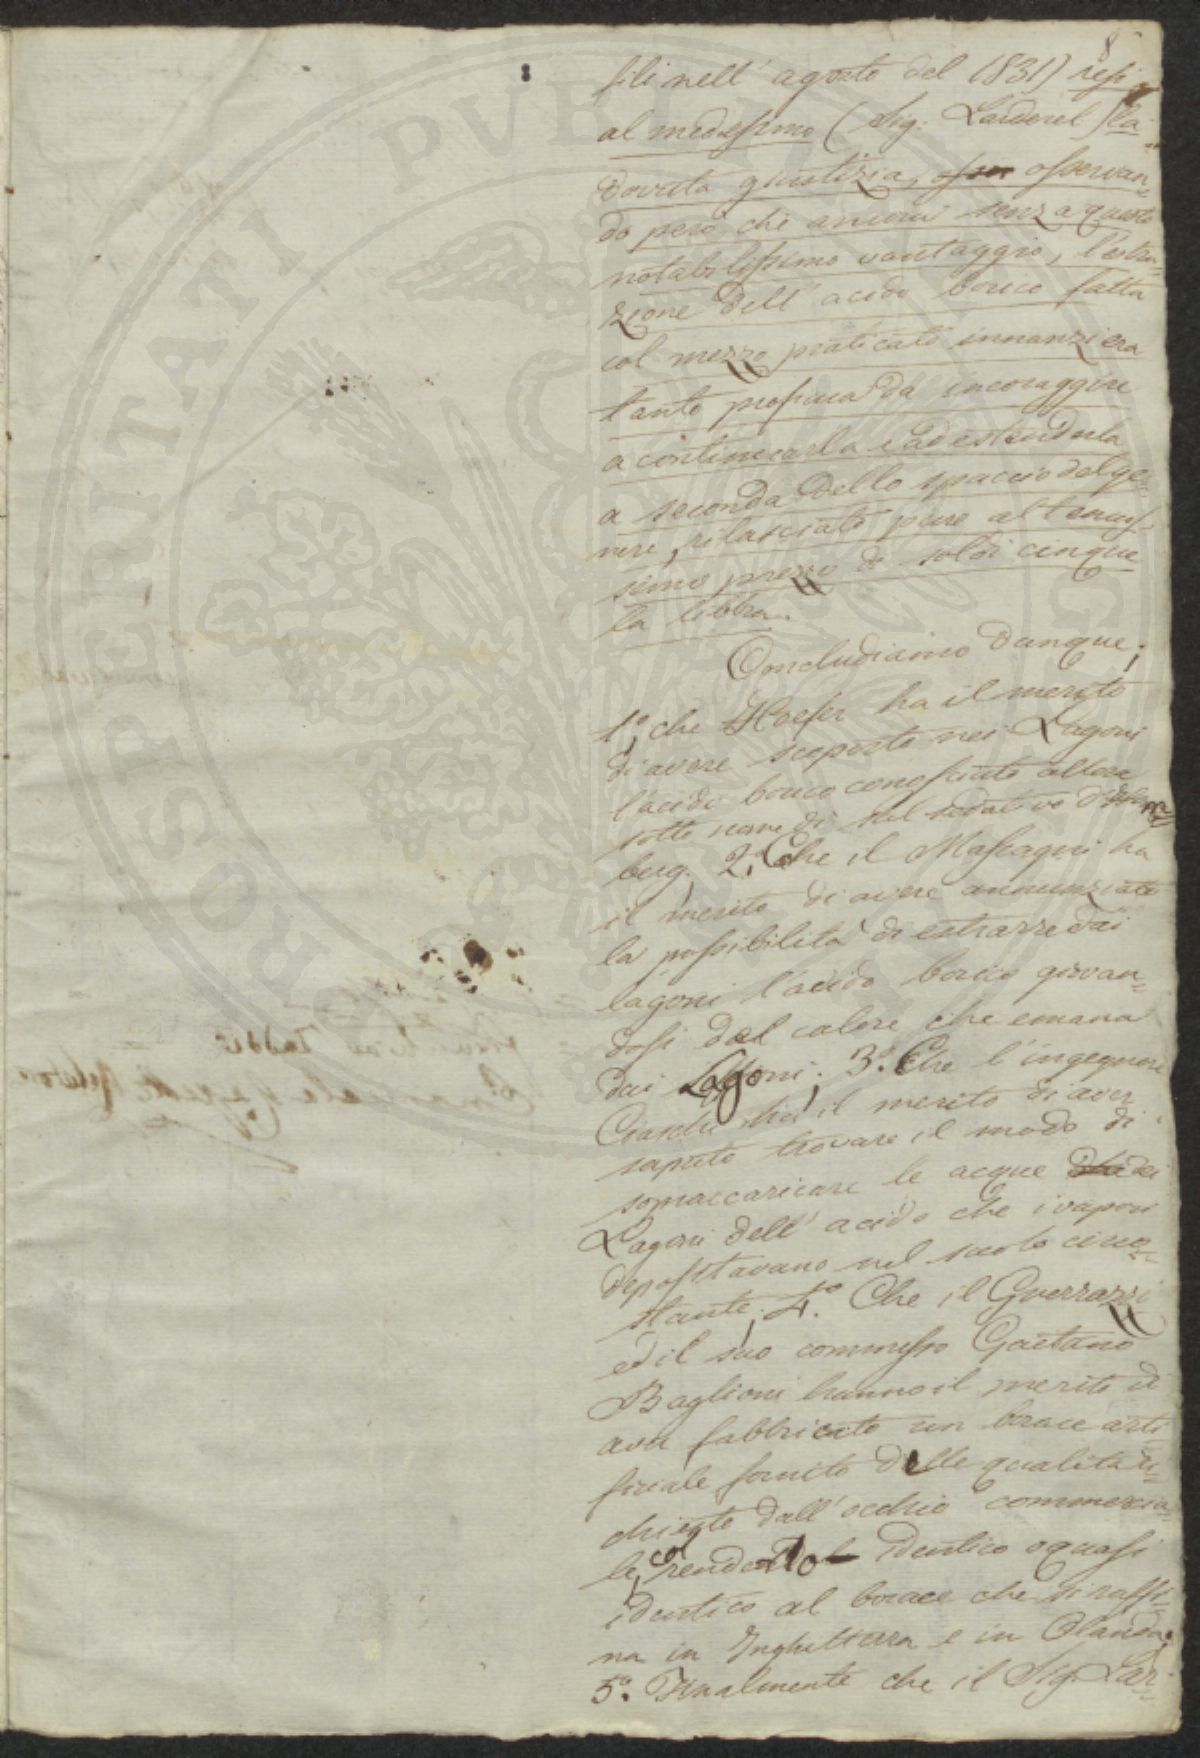 8
fili nell' agosto del 1831) resi
al medesimo (Sig. Larderel) la
dovuta giustizia, osservan=
do però che ancora senza questo
notabilissimo vantaggio, l'estra=
zione dell' acido borico fatta
col mezzo praticato innanzi era
tanto proficua da incoraggire
a continuarla e ad estenderla
a seconda dello spaccio del ge=
nere, rilasciato pure al tenuis=
simo prezzo di soldi cinque
la libbra.
Concludiamo dunque;
1.° che Hoefer ha il merito
di avere scoperto nei Lagoni
l'acido borico conosciuto allora
sotto nome di sal sedativo d'Hom=
berg. 2.° Che il Mascagni ha
il merito di avere annunziato
la possibilità di estrarre dai
lagoni l'acido borico giovan=
dosi del calore che emana
dai Lagoni; 3.° Che l'ingegnere
Ciaschi ha il merito di aver
saputo trovare il modo di
sopraccaricare le acque dei
Lagoni dell' acido che i vapori
depositavano nel suolo circo=
stante; 4.° Che il Guerrazzi
ed il suo commesso Gaetano
Baglioni hanno il merito di
aver fabbricato un borace arti=
ficiale fornito delle qualità ri=
chieste dall' occhio commercia=
le, col renderlo identico o quasi
identico al borace che si raffi=
na in Inghilterra e in Olanda;
5.° Finalmente che il Sig. Lar=